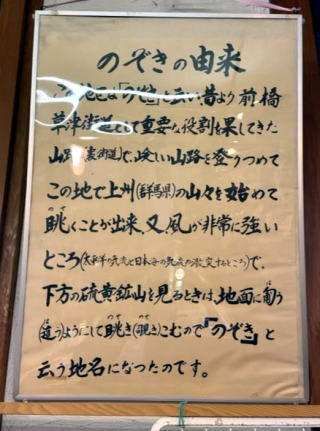 のぞきの由来
この地区は『のぞき』と云い昔より前橋
草津街道として重要な役割を果してきた
山路(裏街道)で、峻しい山路を登りつめて
この地で上州(群馬県)の山々を始めて
眺くことが出来、又風が非常に強い
ところ(太平洋の気流と日本海の気流の激突するところ)で、
下方の硫黄鉱山を見るときは、地面に匍う
(這う)ようにして眺き(覗き)こむので『のぞき』と
云う地名になったのです。